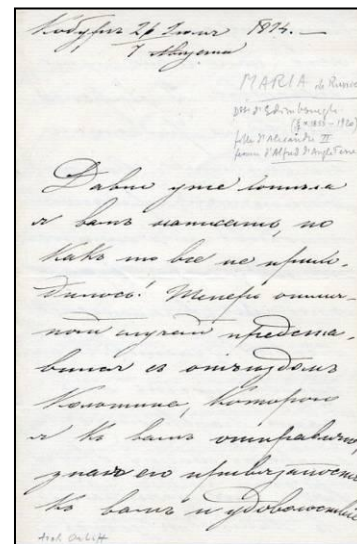 Кобургъ 26 Іюля 1894. —
7 Августа
MARIA de Russie
Dsse d'Edimbourgh
1853 – 1920)
fille d'Alexandre II
femme d'Alfred d'Angleterre
Давно уже хотѣла
я вамъ написать, но
какъ то все не прихо-
дилось! Теперь отлич-
ной случай предста-
вился съ отъѣздомъ
котораго
я къ вамъ отправляю,
зная его привязанность
къ вамъ и удовольствіе